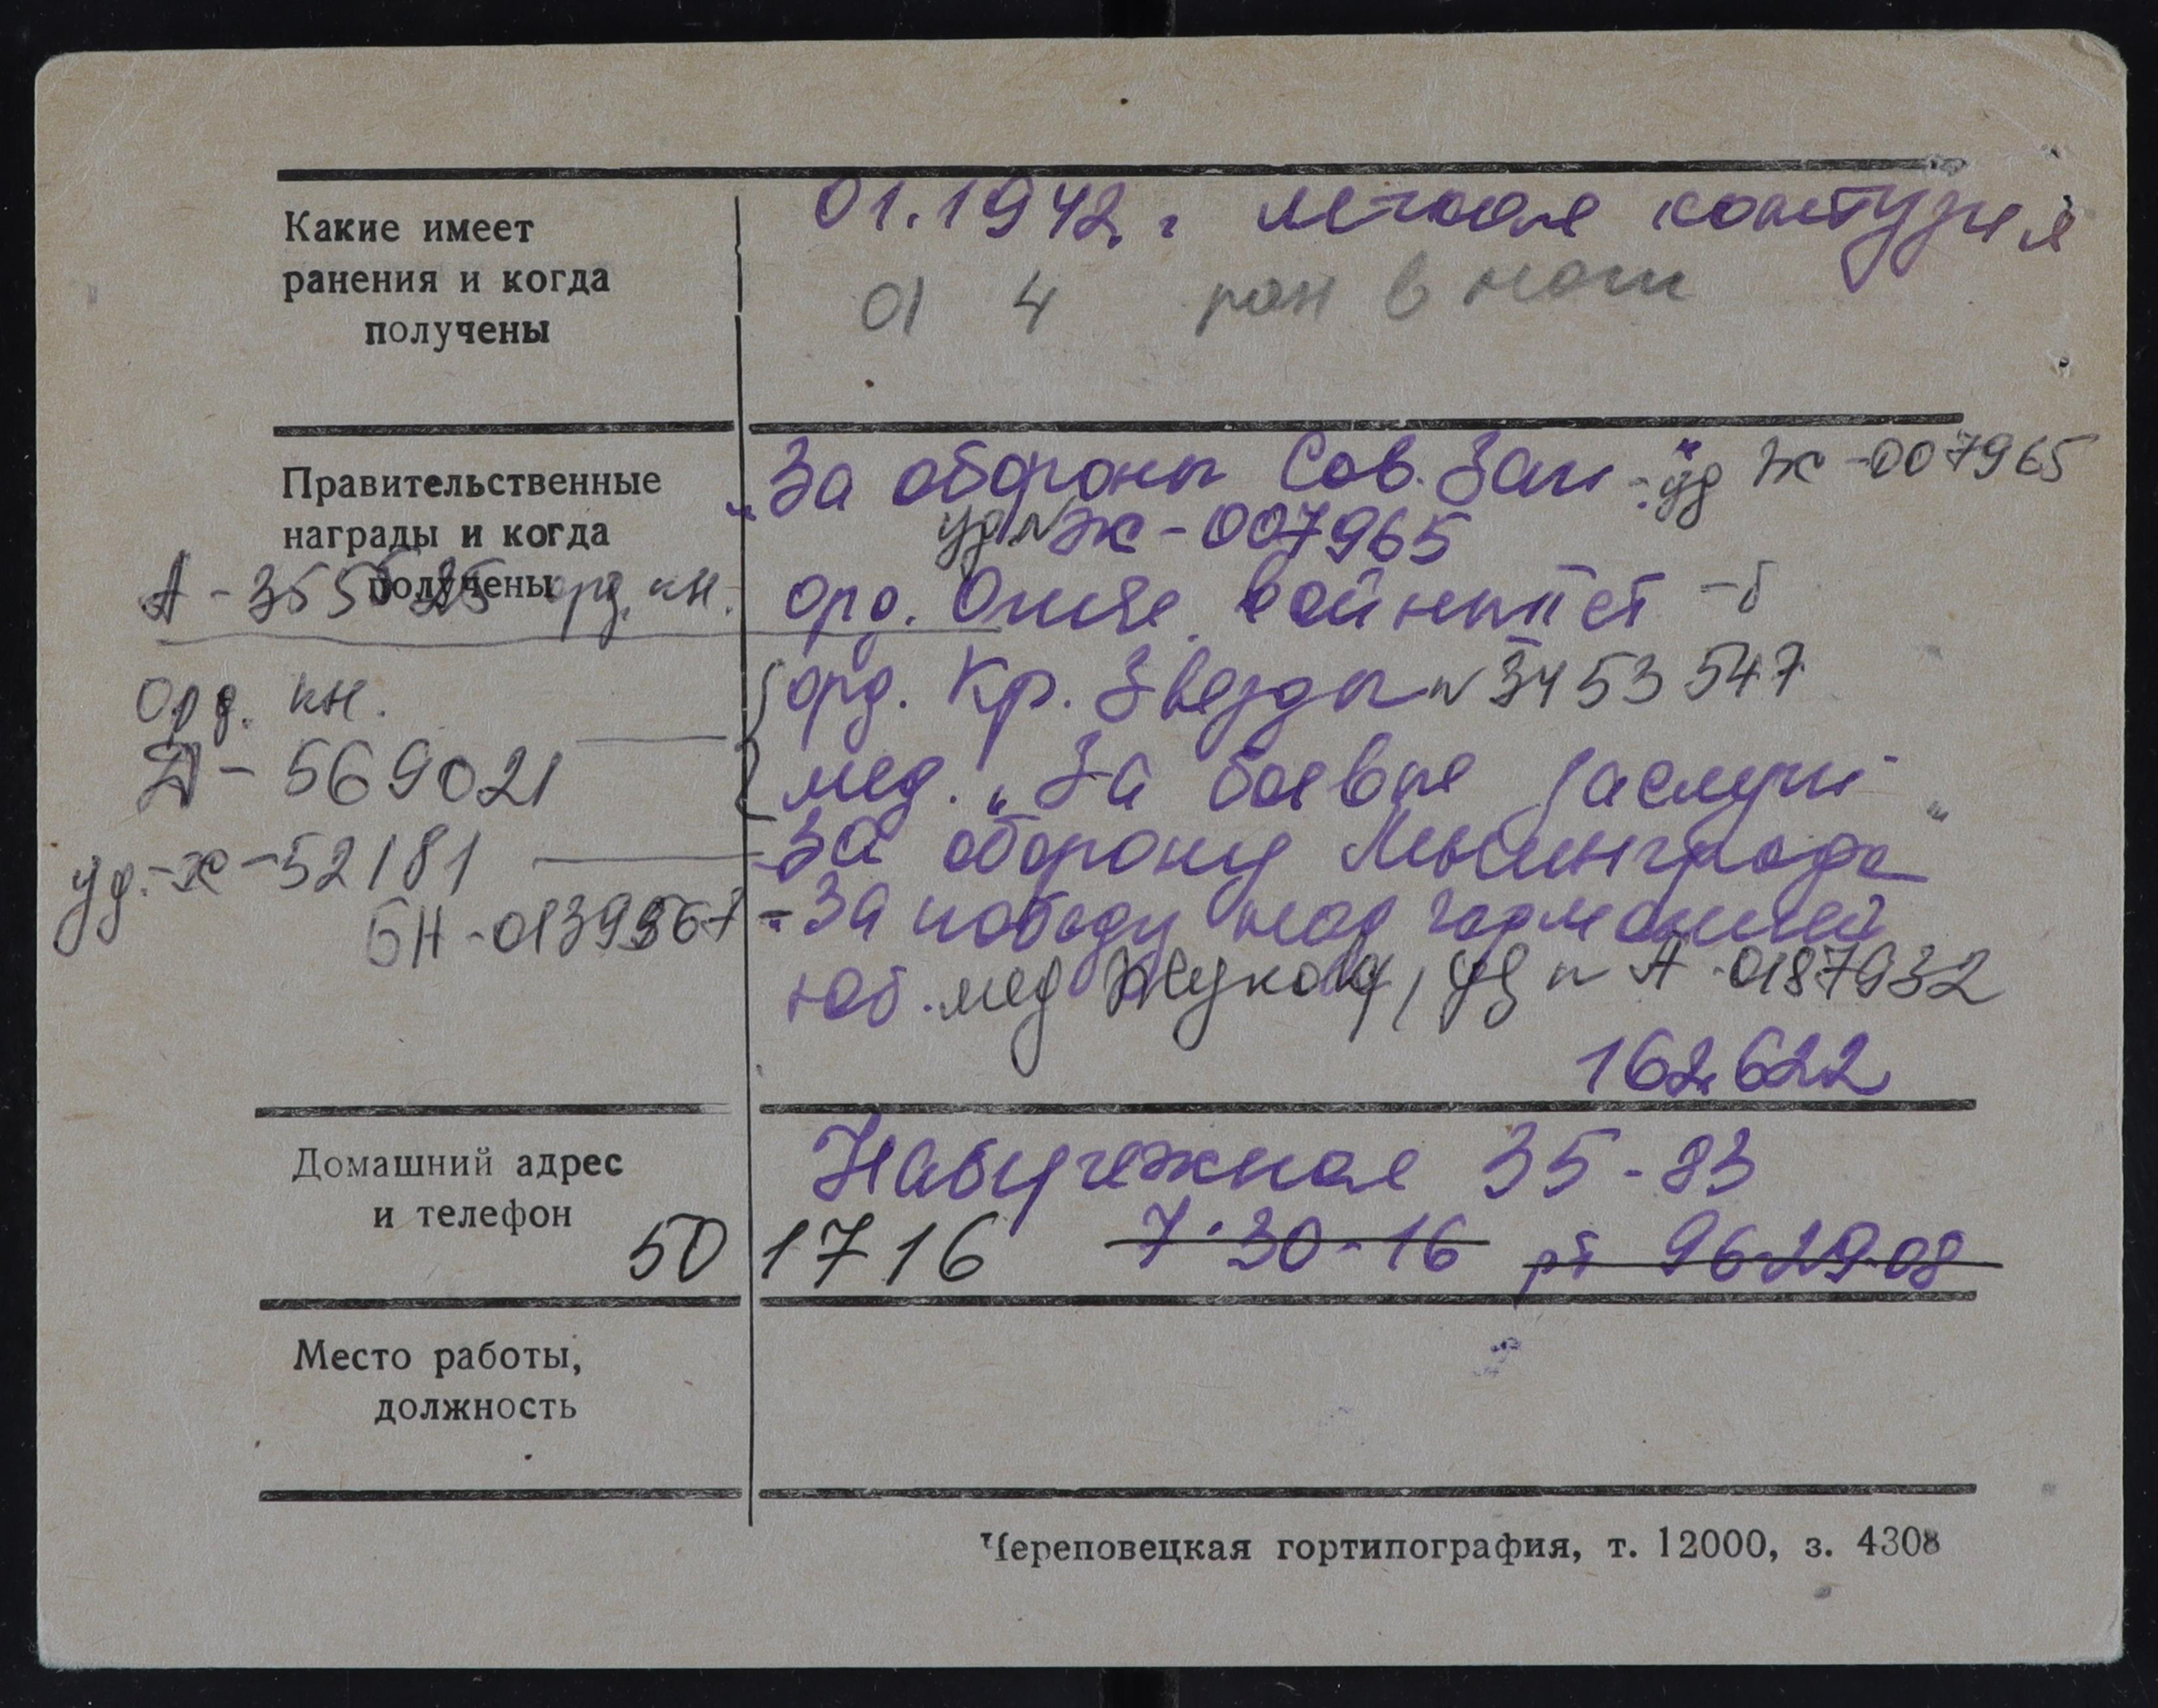 Какие имеет
ранения и когда
получены
01.1942 г легкая контузия
01 4 ран в ноги
Правительственные
награды и когда
получены
„За обороны Сов. Зап" - уд Ж-007965
уд № Ж-007965
А-355525 орд. кн.
орд. Отеч. войны II ст
орд. Кр. Звезды № 3453547
орд. кн.
Д-569021
мед. „За боевые заслуги"
уд.-ж-52181
За оборону Ленинграда
БН-0139967 - За победу над Германией
юб. мед Жукова, уд № А-0187932
162622
Домашний адрес
и телефон
Набережная 35-83
501716 7-30-16 рт 96-29-08
Место работы,
должность
Череповецкая гортипография, т. 12000, з. 4308